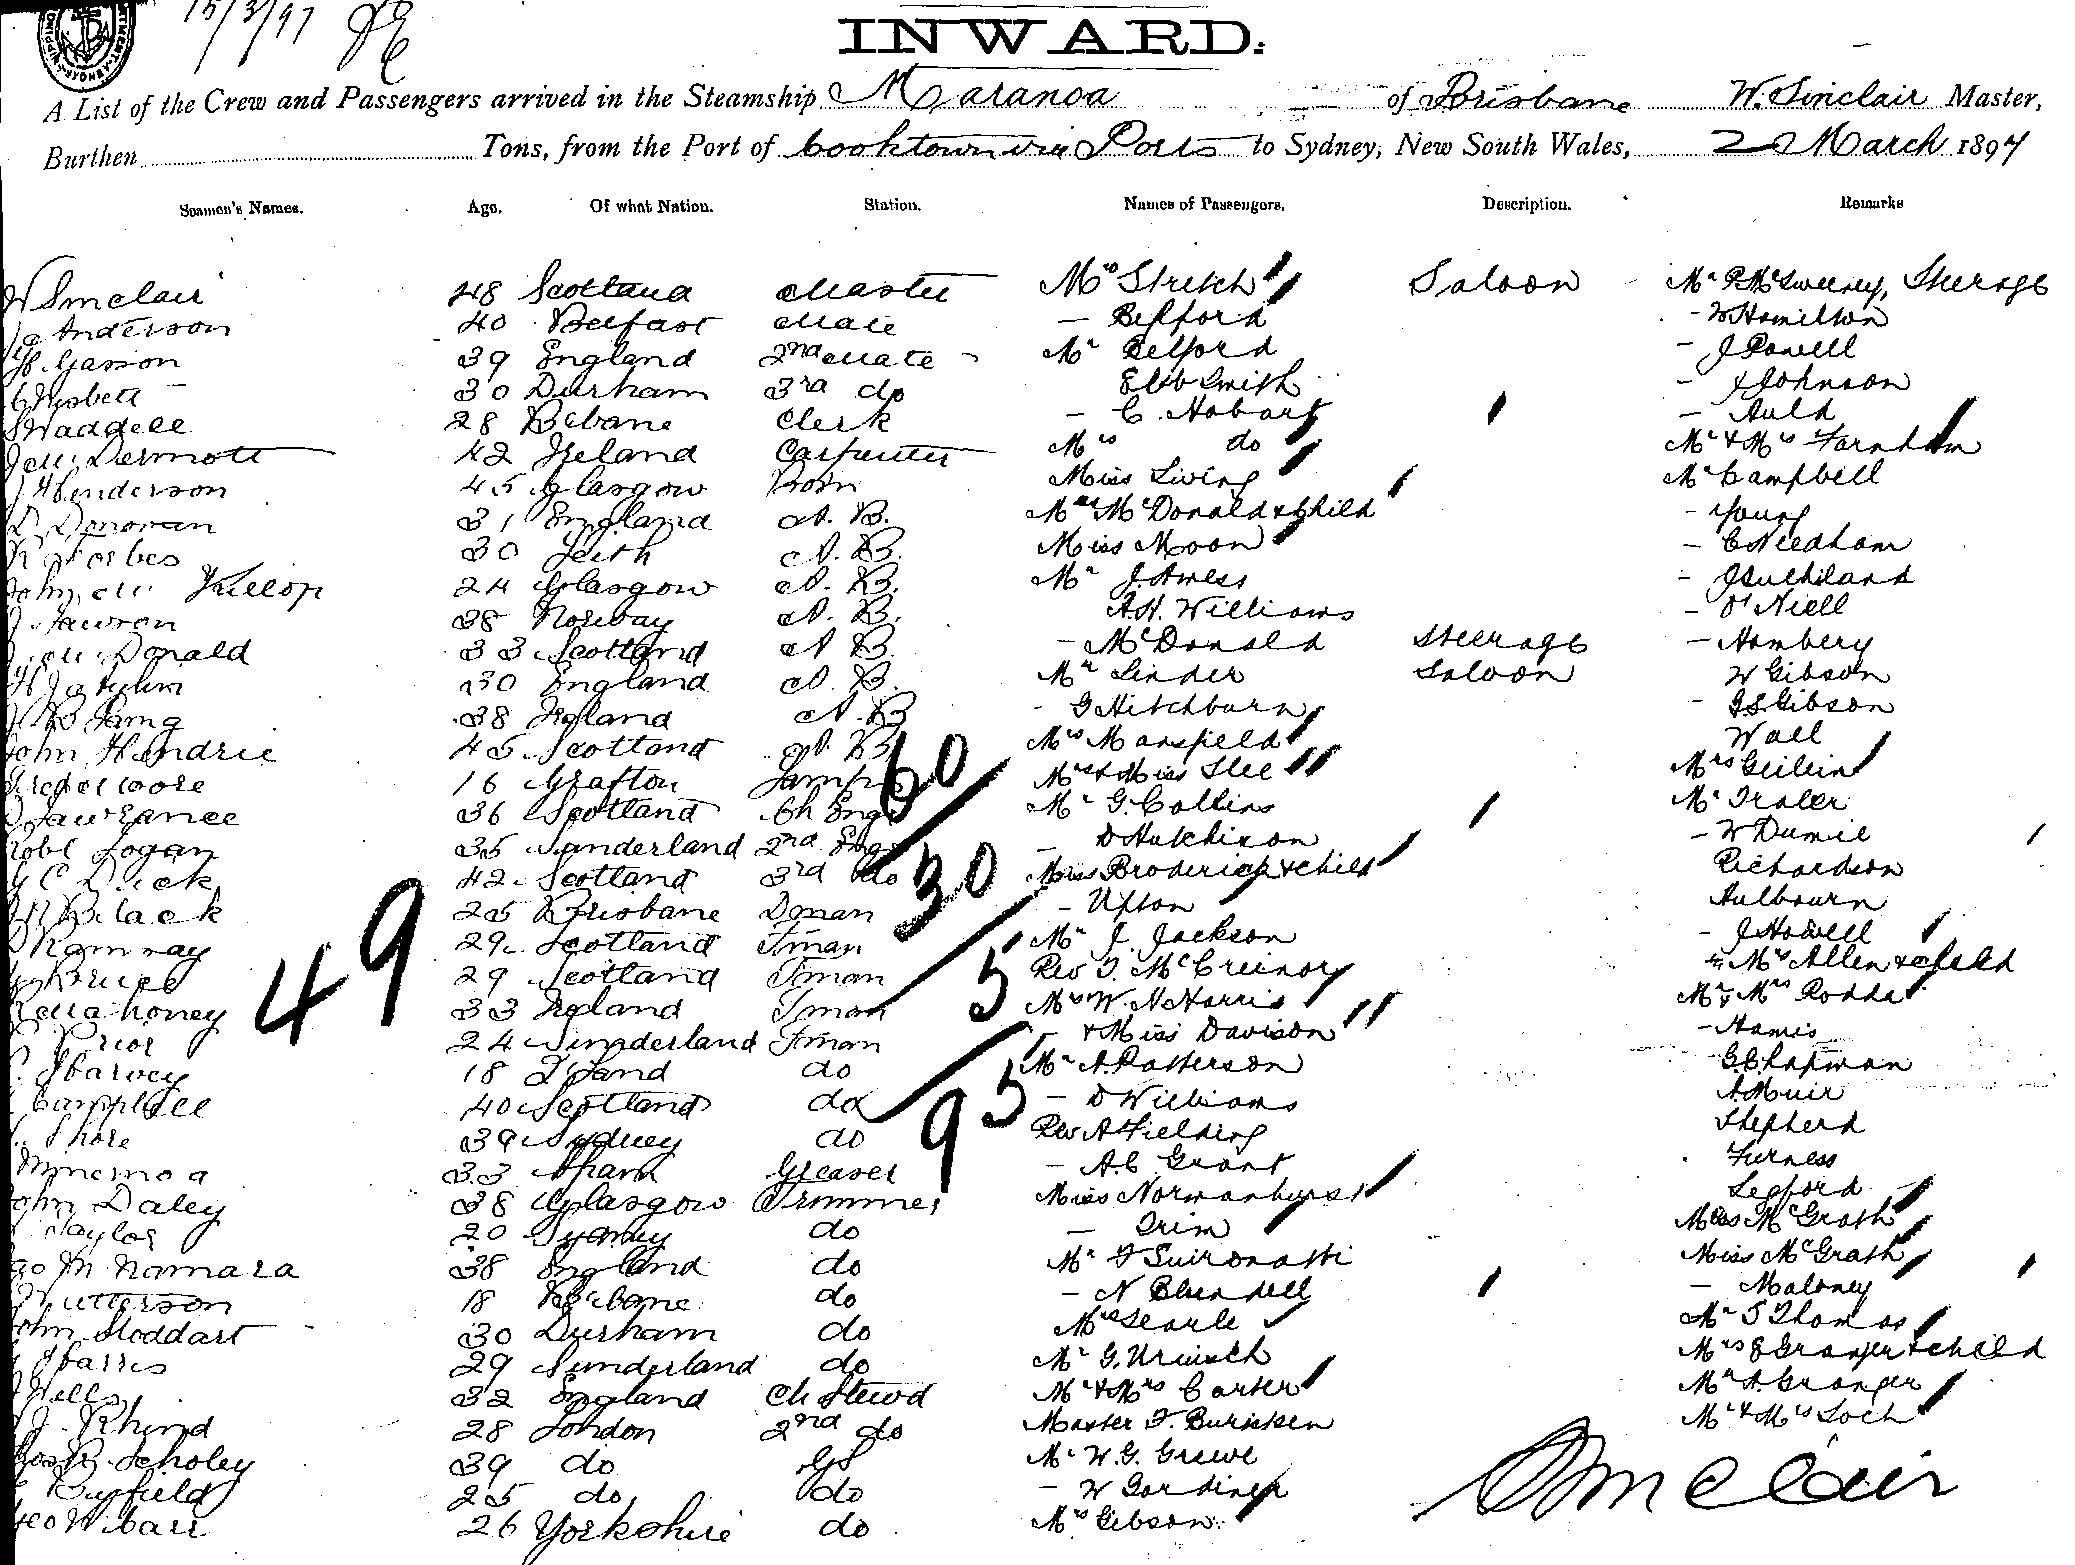 15/3/97
INWARD.
A List of the Crew and Passengers arrived in the Steamship Maranoa of Brisbane W. Sinclair Master,
Burthen Tons, from the Port of Cooktown via Ports to Sydney, New South Wales, 2 March 1897
Seamen's Names. Age. Of what Nation. Station. Names of Passengers. Description. Remarks
W Sinclair 48 Scotland Master Mrs Stretch Saloon Mr P. McSweeney, Steerage
Anderson 40 Belfast Mate — Belford - W Hamilton
Gasson 39 England 2nd Mate Mr Belford - J Powell
Nisbett 30 Durham 3rd do Smith - J Johnson
Waddell 28 Bsbane Clerk - C. Hobart - Auld
McDermott 42 Ireland Carpenter Mrs do Mr & Mrs Farnham
Henderson 45 Glasgow Bosn Miss Living Mr Campbell
D Donovan 31 England A. B. Mrs McDonald & child - Young
R Forbes 30 Leith A. B. Miss Moon - C Needham
John Mc Killop 24 Glasgow A. B. Mr J. Amess -
J Lawson 38 Norway A. B. A.H. Williams - O'Niell
McDonald 33 Scotland A B. — McDonald Steerage - Hambery
30 England A. B. Mr Linder Saloon W Gibson
38 Ireland A. B - G Hitchburn - G S Gibson
John Hendrie 45 Scotland A. B Mrs Mansfield Wall
60
16 Grafton Lamps Mrs & Miss Slee Mrs
Lawrance 36 Scotland Ch Engr Mr G. Collins Mr
Robt Logan 35 Sunderland 2nd Engr - D Hutchison - W
Dick 42 Scotland 3rd do Mrs Broderick & child Richardson
30
Black 25 Brisbane Dman - Upton
Ramsay 29 Scotland Fman Mr J. Jackson - J Howell
49
Bruce 29 Scotland Fman Rev J. Mrs Allen & child
5
Mahoney 33 Ireland Fman Mrs W. H Harris Mr & Mrs Rodda
Prior 24 Sunderland Fman & Miss Davison
Harvey 18 do Mr A. Patterson G. Chapman
95
Campbell 40 Scotland do - D Williams A Muir
Shore 39 Sydney do Rev A Fielding Shepherd
33 Spain Greaser - A.C Grant Furness
John Daley 38 Glasgow Trimmer Miss Normanhurst Ledford
Taylor 20 Sydney do - Trim Miss McGrath
McNamara 38 England do Mr Miss McGrath
18 Bsbane do - N Blundell - Maloney
John Stoddart 30 Durham do Mrs Searle Mr Thomas
Harris 29 Sunderland do Mr G. Mrs Granger & child
Wells 32 England Ch Stewd Mr & Mrs Carter Mr A. Granger
Rhind 28 London 2nd do Master Mr & Mrs Loch
Scholey 39 do GS Mr W. G.
25 do do - W Gardiner Sinclair
26 Yorkshire do Mrs Gibson